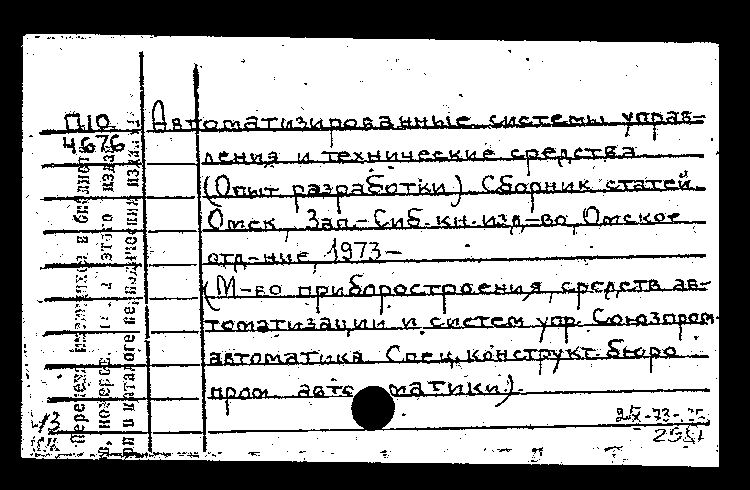 П10
4676
Автоматизированные системы управ-
ления и технические средства
(Опыт разработки). Сборник статей.
Омск, Зап.-Сиб. кн. изд-во, Омское
отд-ние, 1973-
(М-во приборостроения, средств ав-
томатизации и систем упр. Союзпром-
автоматика. Спец. конструкт. бюро
пром. автоматики).
номеров
этого издания
в каталоге периодических изданий